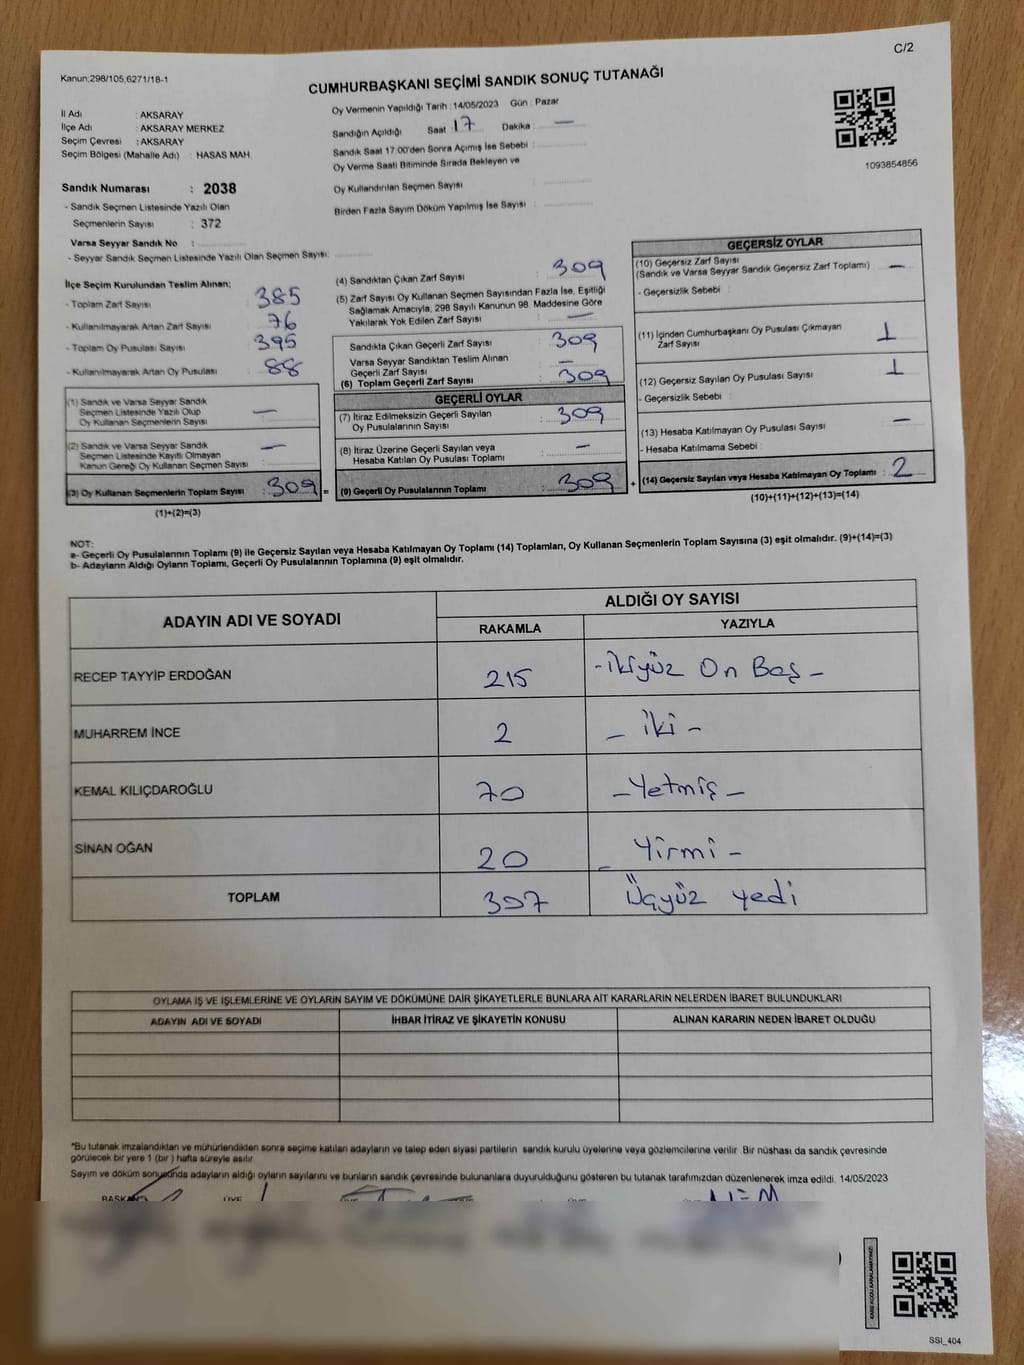 C/2
Kanun:298/105,6271/18-1
CUMHURBAŞKANI SEÇİMİ SANDIK SONUÇ TUTANAĞI
İl Adı : AKSARAY
İlçe Adı : AKSARAY MERKEZ
Seçim Çevresi : AKSARAY
Seçim Bölgesi (Mahalle Adı) : HASAS MAH
Sandık Numarası : 2038
- Sandık Seçmen Listesinde Yazılı Olan
Seçmenlerin Sayısı : 372
Varsa Seyyar Sandık No :
- Seyyar Sandık Seçmen Listesinde Yazılı Olan Seçmen Sayısı:
Oy Vermenin Yapıldığı Tarih : 14/05/2023 Gün : Pazar
Sandığın Açıldığı Saat 17 Dakika : —
Sandık Saat 17:00'den Sonra Açımış İse Sebebi :
Oy Verme Saati Bitiminde Sırada Bekleyen ve
Oy Kullandırılan Seçmen Sayısı :
Birden Fazla Sayım Döküm Yapılmış İse Sayısı :
1093854856
İlçe Seçim Kurulundan Teslim Alınan;
- Toplam Zarf Sayısı 385
- Kullanılmayarak Artan Zarf Sayısı 76
- Toplam Oy Pusulası Sayısı 395
- Kullanılmayarak Artan Oy Pusulası 88
(1) Sandık ve Varsa Seyyar Sandık
Seçmen Listesinde Yazılı Olup
Oy Kullanan Seçmenlerin Sayısı —
(2) Sandık ve Varsa Seyyar Sandık
Seçmen Listesinde Kayıtlı Olmayan
Kanun Gereği Oy Kullanan Seçmen Sayısı —
(3) Oy Kullanan Seçmenlerin Toplam Sayısı : 309 =
(1)+(2)=(3)
(4) Sandıktan Çıkan Zarf Sayısı 309
(5) Zarf Sayısı Oy Kullanan Seçmen Sayısından Fazla İse, Eşitliği
Sağlamak Amacıyla, 298 Sayılı Kanunun 98. Maddesine Göre
Yakılarak Yok Edilen Zarf Sayısı —
Sandıkta Çıkan Geçerli Zarf Sayısı 309
Varsa Seyyar Sandıktan Teslim Alınan
Geçerli Zarf Sayısı —
(6) Toplam Geçerli Zarf Sayısı 309
GEÇERLİ OYLAR
(7) İtiraz Edilmeksizin Geçerli Sayılan
Oy Pusulalarının Sayısı 309
(8) İtiraz Üzerine Geçerli Sayılan veya
Hesaba Katılan Oy Pusulası Toplamı —
(9) Geçerli Oy Pusulalarının Toplamı 309 +
GEÇERSİZ OYLAR
(10) Geçersiz Zarf Sayısı
(Sandık ve Varsa Seyyar Sandık Geçersiz Zarf Toplamı) —
- Geçersizlik Sebebi :
(11) İçinden Cumhurbaşkanı Oy Pusulası Çıkmayan
Zarf Sayısı 1
(12) Geçersiz Sayılan Oy Pusulası Sayısı 1
- Geçersizlik Sebebi :
(13) Hesaba Katılmayan Oy Pusulası Sayısı —
- Hesaba Katılmama Sebebi :
(14) Geçersiz Sayılan veya Hesaba Katılmayan Oy Toplamı : 2
(10)+(11)+(12)+(13)=(14)
NOT:
a- Geçerli Oy Pusulalarının Toplamı (9) ile Geçersiz Sayılan veya Hesaba Katılmayan Oy Toplamı (14) Toplamları, Oy Kullanan Seçmenlerin Toplam Sayısına (3) eşit olmalıdır. (9)+(14)=(3)
b- Adayların Aldığı Oyların Toplamı, Geçerli Oy Pusulalarının Toplamına (9) eşit olmalıdır.
ADAYIN ADI VE SOYADI ALDIĞI OY SAYISI
RAKAMLA YAZIYLA
RECEP TAYYİP ERDOĞAN 215 -ikiyüz On Beş-
MUHARREM İNCE 2 - iki -
KEMAL KILIÇDAROĞLU 70 -Yetmiş-
SİNAN OĞAN 20 - Yirmi -
TOPLAM 307 Üçyüz yedi
OYLAMA İŞ VE İŞLEMLERİNE VE OYLARIN SAYIM VE DÖKÜMÜNE DAİR ŞİKAYETLERLE BUNLARA AİT KARARLARIN NELERDEN İBARET BULUNDUKLARI
ADAYIN ADI VE SOYADI İHBAR İTİRAZ VE ŞİKAYETİN KONUSU ALINAN KARARIN NEDEN İBARET OLDUĞU
*Bu tutanak imzalandıktan ve mühürlendikten sonra seçime katılan adayların ve talep eden siyasi partilerin sandık kurulu üyelerine veya gözlemcilerine verilir. Bir nüshası da sandık çevresinde
görülecek bir yere 1 (bir) hafta süreyle asılır.
Sayım ve döküm sonucunda adayların aldığı oyların sayılarını ve bunların sandık çevresinde bulunanlara duyurulduğunu gösteren bu tutanak tarafımızdan düzenlenerek imza edildi. 14/05/2023
BAŞKAN ÜYE
SSI_404